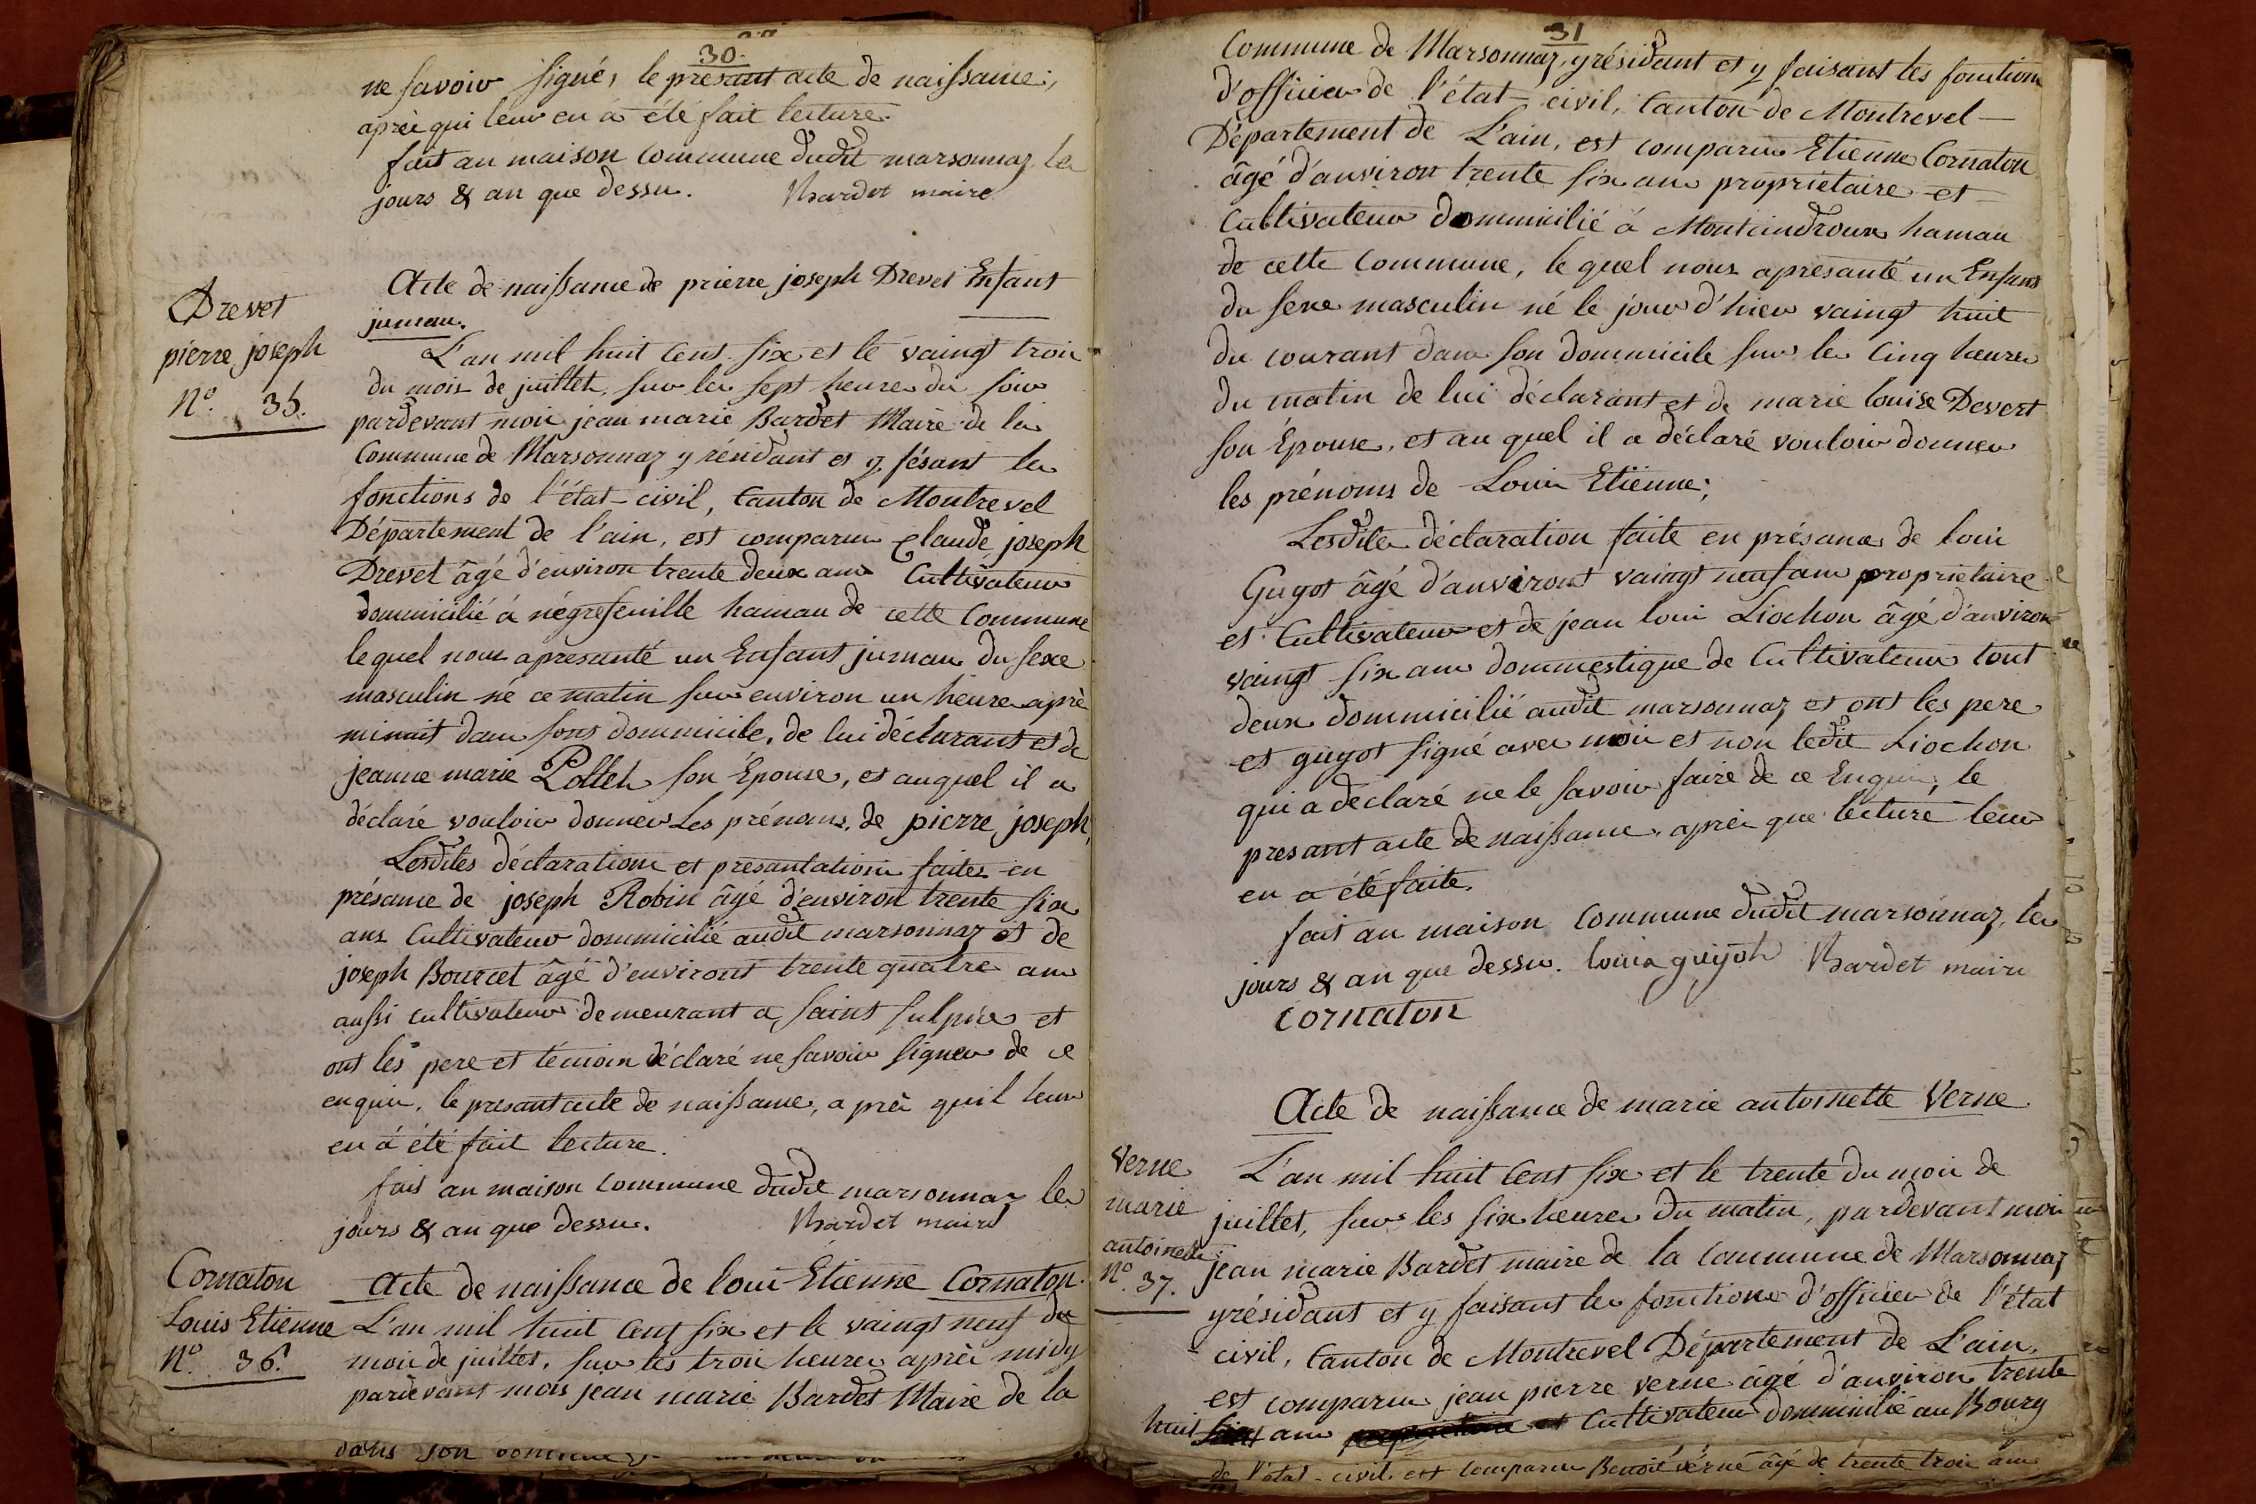 30.
ne savoir signé, le présant acte de naissance;
après qui leur en à été fait lecture.
fait an maison commune dudit marsonnaz les
jours & an que dessu. Bardet maire
Acte de naissance de prierre joseph Drevet Enfant
jumau.
Drevet
pierre joseph
N.o 35.
L'an mil huit cent six et le vaingt trois
du mois de juillet, sur les sept heures du soir
pardevant moi jean marie Bardet Maire de la
Commune de Marsonnaz y résidant et y fésant les
fonctions de l'état-civil, Canton de Montrevel
Département de l'ain, est comparu Claude joseph
Drevet âgé d'environ trente deux ans Cultivateur
dommicilié à négrefeuille hamau de cette Commune
lequel nous apresanté un Enfant jumau du sexe
masculin né ce matin sur environ un heure après
minuit dans sons dommicile, de lui déclarant et de
jeanne marie Pollet son Épouse, et auquel il a
déclaré vouloir donner Les prénoms, de pierre joseph,
Lesdites déclarations et presantations faites en
présance de joseph Robin âgé d'environ trente six
ans Cultivateur dommicilié audit marsonnaz et de
joseph Bourcet âgé d'environt trente quatre ans
aussi cultivateur demeurant a saint sulpice et
ont les pere et témoin déclaré ne savoir signer de ce
enquis, le presant acte de naissance, a près quil leur
en à été fait lecture.
fais an maison commune dudit marsonnaz les
jours & an que dessu. Bardet maire
Cornaton
Louis Etienne
N.o 36.
Acte de naissance de loui Etienne Cornaton.
L'an mil huit cent six et le vaingt neuf du
mois de juillet, sur les trois heures après midy
pardevant mois jean marie Bardet Maire de la
dans son
31
Commune de Marsonnaz, y résidant et y faisant les fonctions
d'officier de l'état-civil, Canton de Montrevel
Département de L'ain, est comparu Etienne Cornaton
âgé d'anviron trente six ans propriétaire et
Cultivateur dommicilié à Montcindroux hamau
de cette Commune, le quel nous apresanté un Enfans
du sexe masculin né le jour d'hier vaingt huit
du courant dans son dommicile sur les Cinq heures
du matin de lui déclarant et de marie louise Devert
son Épouse, et au quel il a déclaré vouloir donner
les prénoms de Louis Etienne;
Lesdites déclaration faite en présance de loui
Guyot âgé d'anviront vaingt neuf ans propriétaire
et Cultivateur et de jean loui Liochon âgé d'anviron
vaingt six ans dommestique de Cultivateur tout
deux dommicilié audit marsonnaz et ont les pere
et guyot signé avec moi et non ledit Liochon
qui a déclaré ne le savoir faire de ce Enquis, le
presant acte de naissance, après que lecture leur
en a été faite.
fait an maison commune dudit marsonnaz, les
jours & an que dessu. louis guyot Bardet maire
Cornaton
Acte de naissance de marie antoinette Verne
Verne
marie
antoinette
N.o 37.
L'an mil huit Cent six et le trente du mois de
juillet, sur les six heures du matin, pardevant moi
jean marie Bardet maire de la commune de Marsonnaz
y résidant et y faisant les fonctions d'officier de l'état
civil, Canton de Montrevel Département de L'ain,
est comparu jean pierre verne âgé d'anviron trente
huit ans Cultivateur dommicilié au Bourg
de l'état-civil, est comparu Benoit verne âgé de trente trois ans